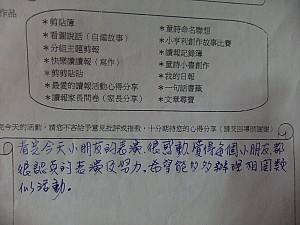 作品
*剪貼簿
*看圖說話（自編故事）
*分組主題剪報
*快樂讀讀報（寫作）
*剪剪貼貼
*最愛的讀報活動心得分享
*讀報家長問卷（家長分享）
*童詩命名聯想
*小亨利創作故事比賽
*讀報記錄簿
*童詩小書創作
*我的日報
*一句話書籤
*文章尋寶
完今天的活動，請您不吝給予意見批評或指教，十分期待您的心得分享！
看完今天小朋友的表演，很感動，覺得每個小朋友都
很認真的表演及努力。希望能多多辦理相關類
似活動。